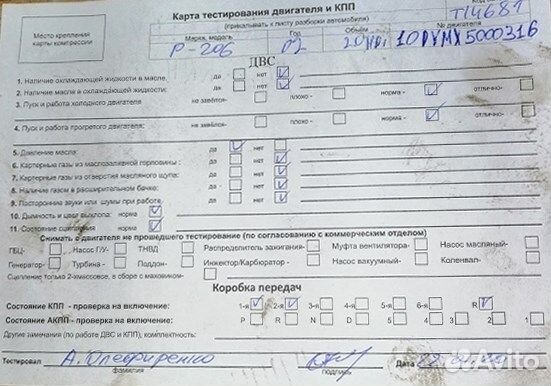 Карта тестирования двигателя и КПП
(прикалывать к листу разборки автомобиля)
Место крепления карты компрессии
Марка, модель Год Объём № двигателя
P-206 02 2.0 HDi 10DYMX5000316
T14681
ДВС
1. Наличие охлаждающей жидкости в масле. да нет
2. Наличие масла в охлаждающей жидкости: да нет
3. Пуск и работа холодного двигателя не завелся- плохо - норма - отлично-
4. Пуск и работа прогретого двигателя: не завелся- плохо - норма - отлично-
5. Давление масла: да нет
6. Картерные газы из маслозаливной горловины : да нет
7. Картерные газы из отверстия масляного щупа: да нет
8. Наличие газом в расширительном бачке: да нет
9. Посторонние звуки или шумы при работе да нет
10. Дымность и цвет выхлопа: норма
11. Состояние сцепления норма
Снимать с двигателя не прошедшего тестирование (по согласованию с коммерческим отделом)
ГБЦ- Насос Г/У- ТНВД Распределитель зажигания- Муфта вентилятора- Насос масляный-
Генератор- Турбина - Поддон- Инжектор/Карбюратор - Насос вакуумный- Коленвал-
Сцепление только 2-хмассовое, в сборе с маховиком-
Коробка передач
Состояние КПП - проверка на включение: 1-я 2-я 3-я 4-я 5-я 6-я R
Состояние АКПП - проверка на включение: P R N D 5 4 3 2 1
Другие замечания (по работе ДВС и КПП), комплектность:
Тестировал А. Олефиренко Дата 22
фамилия подпись
Avito